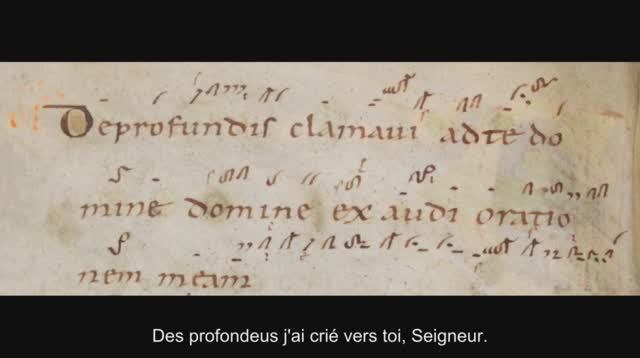 Deprofundis clamaui adte do
mine domine exaudi oratio
nem meam
Des profondeus j'ai crié vers toi, Seigneur.